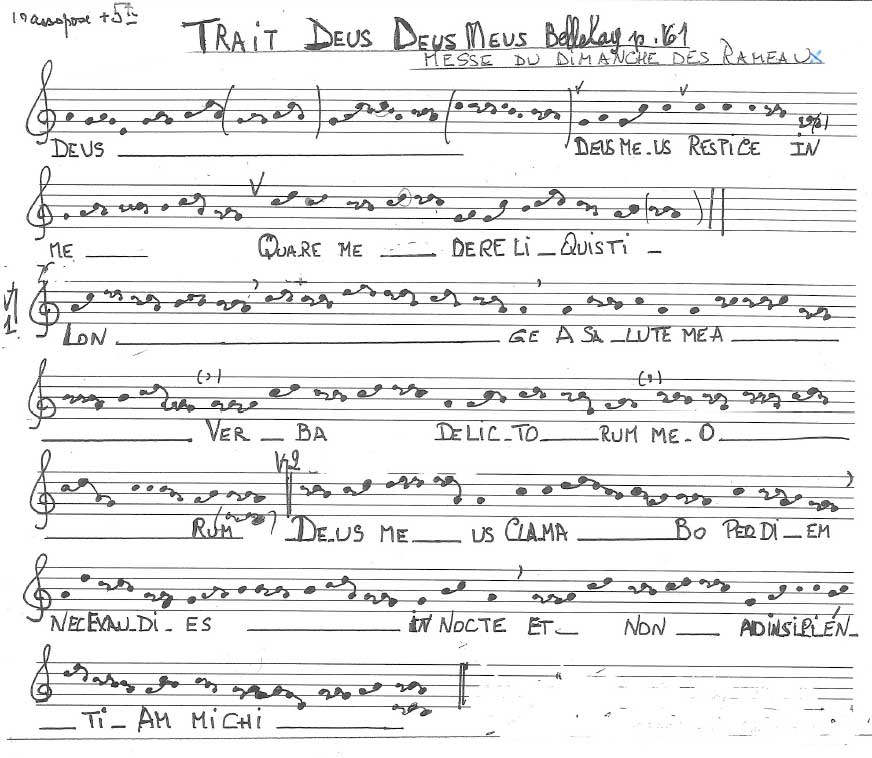 transpose + 5te
TRAIT DEUS DEUS MEUS Bellelay p.161
MESSE DU DIMANCHE DES RAMEAUX
DEUS DEUS ME-US RESPICE IN
ME QUARE ME DERELI-QUISTI-
V 1.
LON GE A SA-LUTE MEA
VER-BA DELIC-TO RUM ME-O
V 2
RUM DE-US ME US CLAMA BO PER DI-EM
NEC EXAU-DI-ES IN NOCTE ET- NON AD INSIPIÉN-
TI-AM MICHI